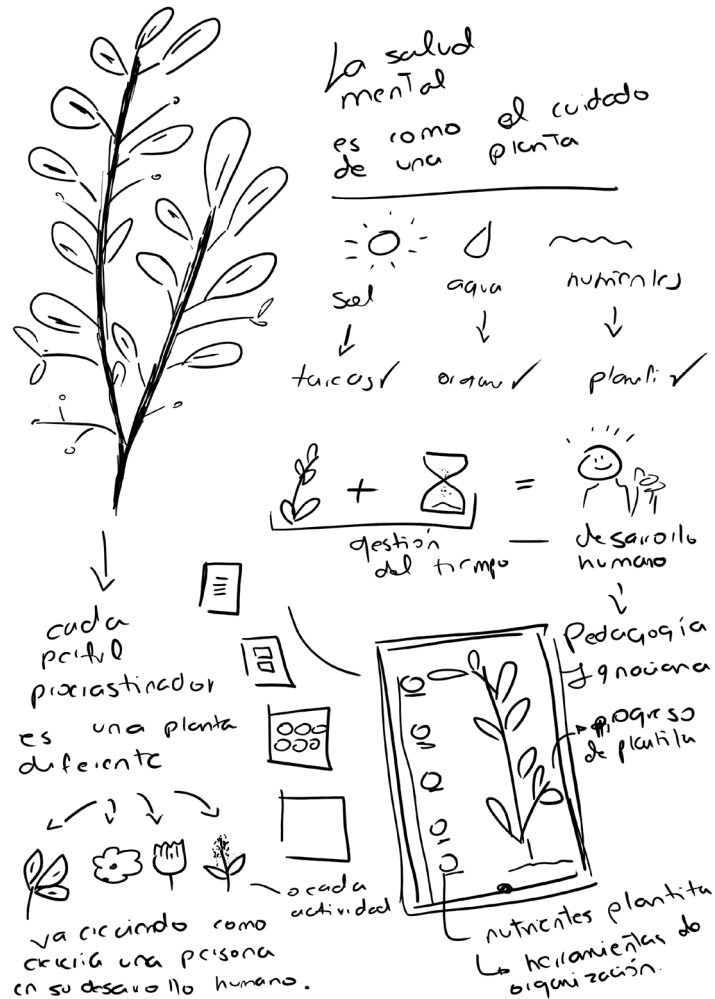 La salud
mental
es como el cuidado
de una planta
sol
agua
nutrientes
tareas
organi
planifi
gestión
del tiempo
desarrollo
humano
Pedagogía
Ignaciana
cada
perfil
procrastinador
es una planta
diferente
o cada
actividad
va creciendo como
crecería una persona
en su desarrollo humano.
progreso
de plantita
nutrientes plantita
herramientas de
organización.